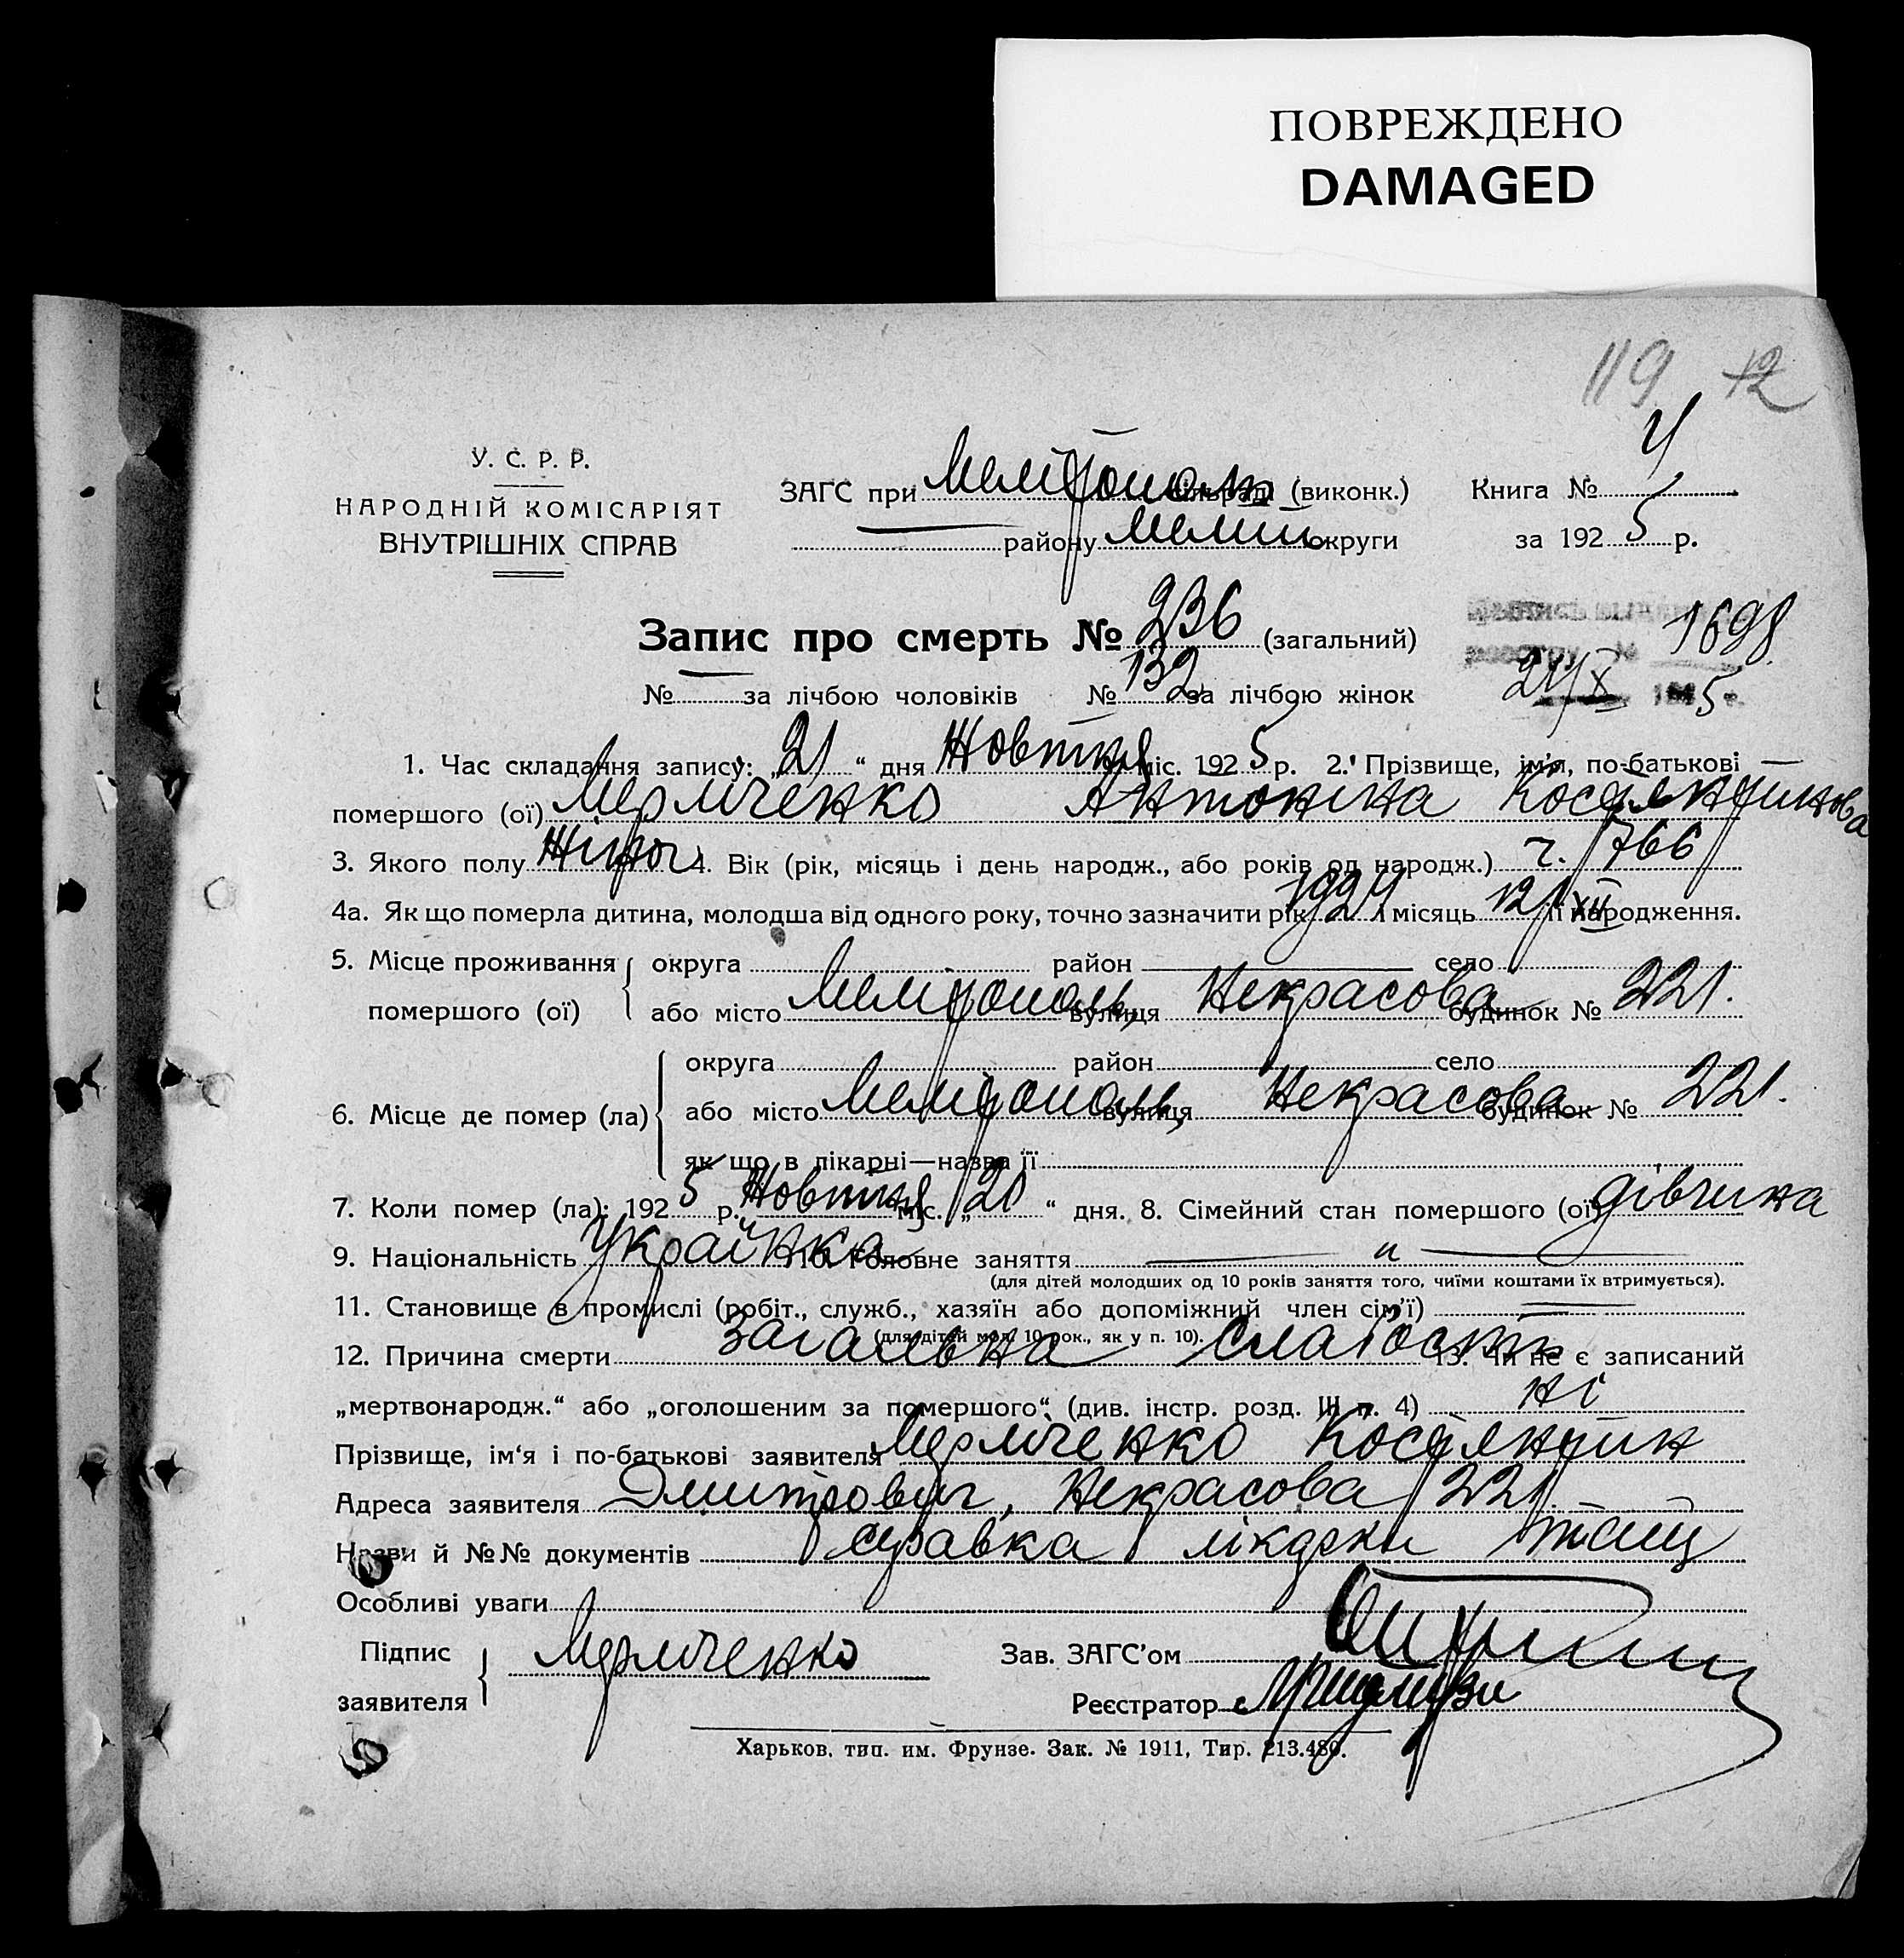 ПОВРЕЖДЕНО
DAMAGED
119 12
У. С. Р. Р.
НАРОДНІЙ КОМІСАРІЯТ
ВНУТРІШНІХ СПРАВ
ЗАГС при Мелітополь сільраді (виконк.)
району Меліт округи
Книга № 4
за 1925 р.
Запис про смерть № 236 (загальний)
№ — за лічбою чоловіків № 132 за лічбою жінок
1698
24/X 1925
1. Час складання запису: „21“ дня Жовтня міс. 1925 р. 2. Прізвище, ім'я, по-батькові
помершого (ої) Антоніна Костянтинова
3. Якого полу 4. Вік (рік, місяць і день народж., або років од народж.)
4а. Як що померла дитина, молодша від одного року, точно зазначити рік 1924 і місяць 12/XII її народження.
5. Місце проживання помершого (ої) округа район — село
або місто Мелітополь, вулиця Некрасова будинок № 221.
6. Місце де помер (ла) округа район село
або місто Мелітополь, вулиця Некрасова будинок № 221.
як що в лікарні—назва її
7. Коли помер (ла): 1925 р. Жовтня міс. „20“ дня. 8. Сімейний стан помершого (ої) дівчина
9. Національність Українка 10. Головне заняття — „ —
(для дітей молодших од 10 років заняття того, чиїми коштами їх втримується).
11. Становище в промислі (робіт., служб., хазяїн або допоміжний член сім'ї) —
(для дітей мол. 10 рок., як у п. 10).
12. Причина смерти Загальна слабость 13. Чи не є записаний
„мертвонародж.“ або „оголошеним за помершого“ (див. інстр. розд. III п. 4) ні
Прізвище, ім'я і по-батькові заявителя Костянтин
Адреса заявителя Дмитрович, Некрасова 221
Назви й №№ документів справка лікарки
Особливі уваги
Підпис
заявителя
Зав. ЗАГС'ом
Реєстратор
Харьков, тип. им. Фрунзе. Зак. № 1911, Тир. 213.480.